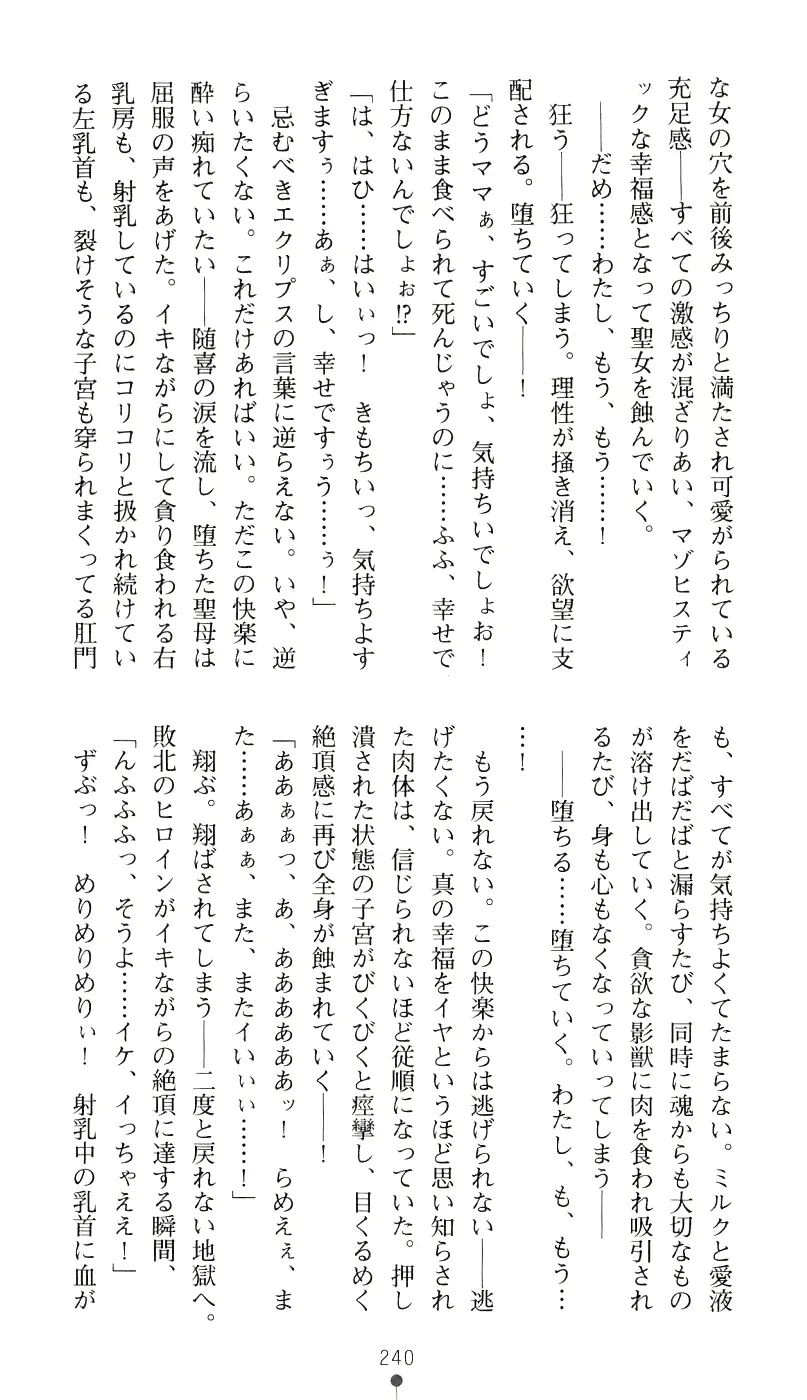 な女の穴を前後みっちりと満たされ可愛がられている
充足感――すべての激感が混ざりあい、マゾヒスティ
ックな幸福感となって聖女を蝕んでいく。
――だめ……わたし、もう、もう……！
狂う――狂ってしまう。理性が掻き消え、欲望に支
配される。堕ちていく――！
「どうママぁ、すごいでしょ、気持ちいでしょお！
このまま食べられて死んじゃうのに……ふふ、幸せで
仕方ないんでしょぉ!?」
「は、はひ……はいぃっ！　きもちいっ、気持ちよす
ぎますぅ……あぁ、し、幸せですぅう……ぅ！」
忌むべきエクリプスの言葉に逆らえない。いや、逆
らいたくない。これだけあればいい。ただこの快楽に
酔い痴れていたい――随喜の涙を流し、堕ちた聖母は
屈服の声をあげた。イキながらにして貪り食われる右
乳房も、射乳しているのにコリコリと扱かれ続けてい
る左乳首も、裂けそうな子宮も穿られまくってる肛門
も、すべてが気持ちよくてたまらない。ミルクと愛液
をだばだばと漏らすたび、同時に魂からも大切なもの
が溶け出していく。貪欲な影獣に肉を食われ吸引され
るたび、身も心もなくなっていってしまう――
――堕ちる……堕ちていく。わたし、も、もう…
…！
もう戻れない。この快楽からは逃げられない――逃
げたくない。真の幸福をイヤというほど思い知らされ
た肉体は、信じられないほど従順になっていた。押し
潰された状態の子宮がびくびくと痙攣し、目くるめく
絶頂感に再び全身が蝕まれていく――！
「ああぁぁっ、あ、ああああああッ！　らめえぇ、ま
た……あぁぁ、また、またイいぃぃ……！」
翔ぶ。翔ばされてしまう――二度と戻れない地獄へ。
敗北のヒロインがイキながらの絶頂に達する瞬間、
「んふふふっ、そうよ……イケ、イっちゃええ！」
ずぶっ！　めりめりめりぃ！　射乳中の乳首に血が
240